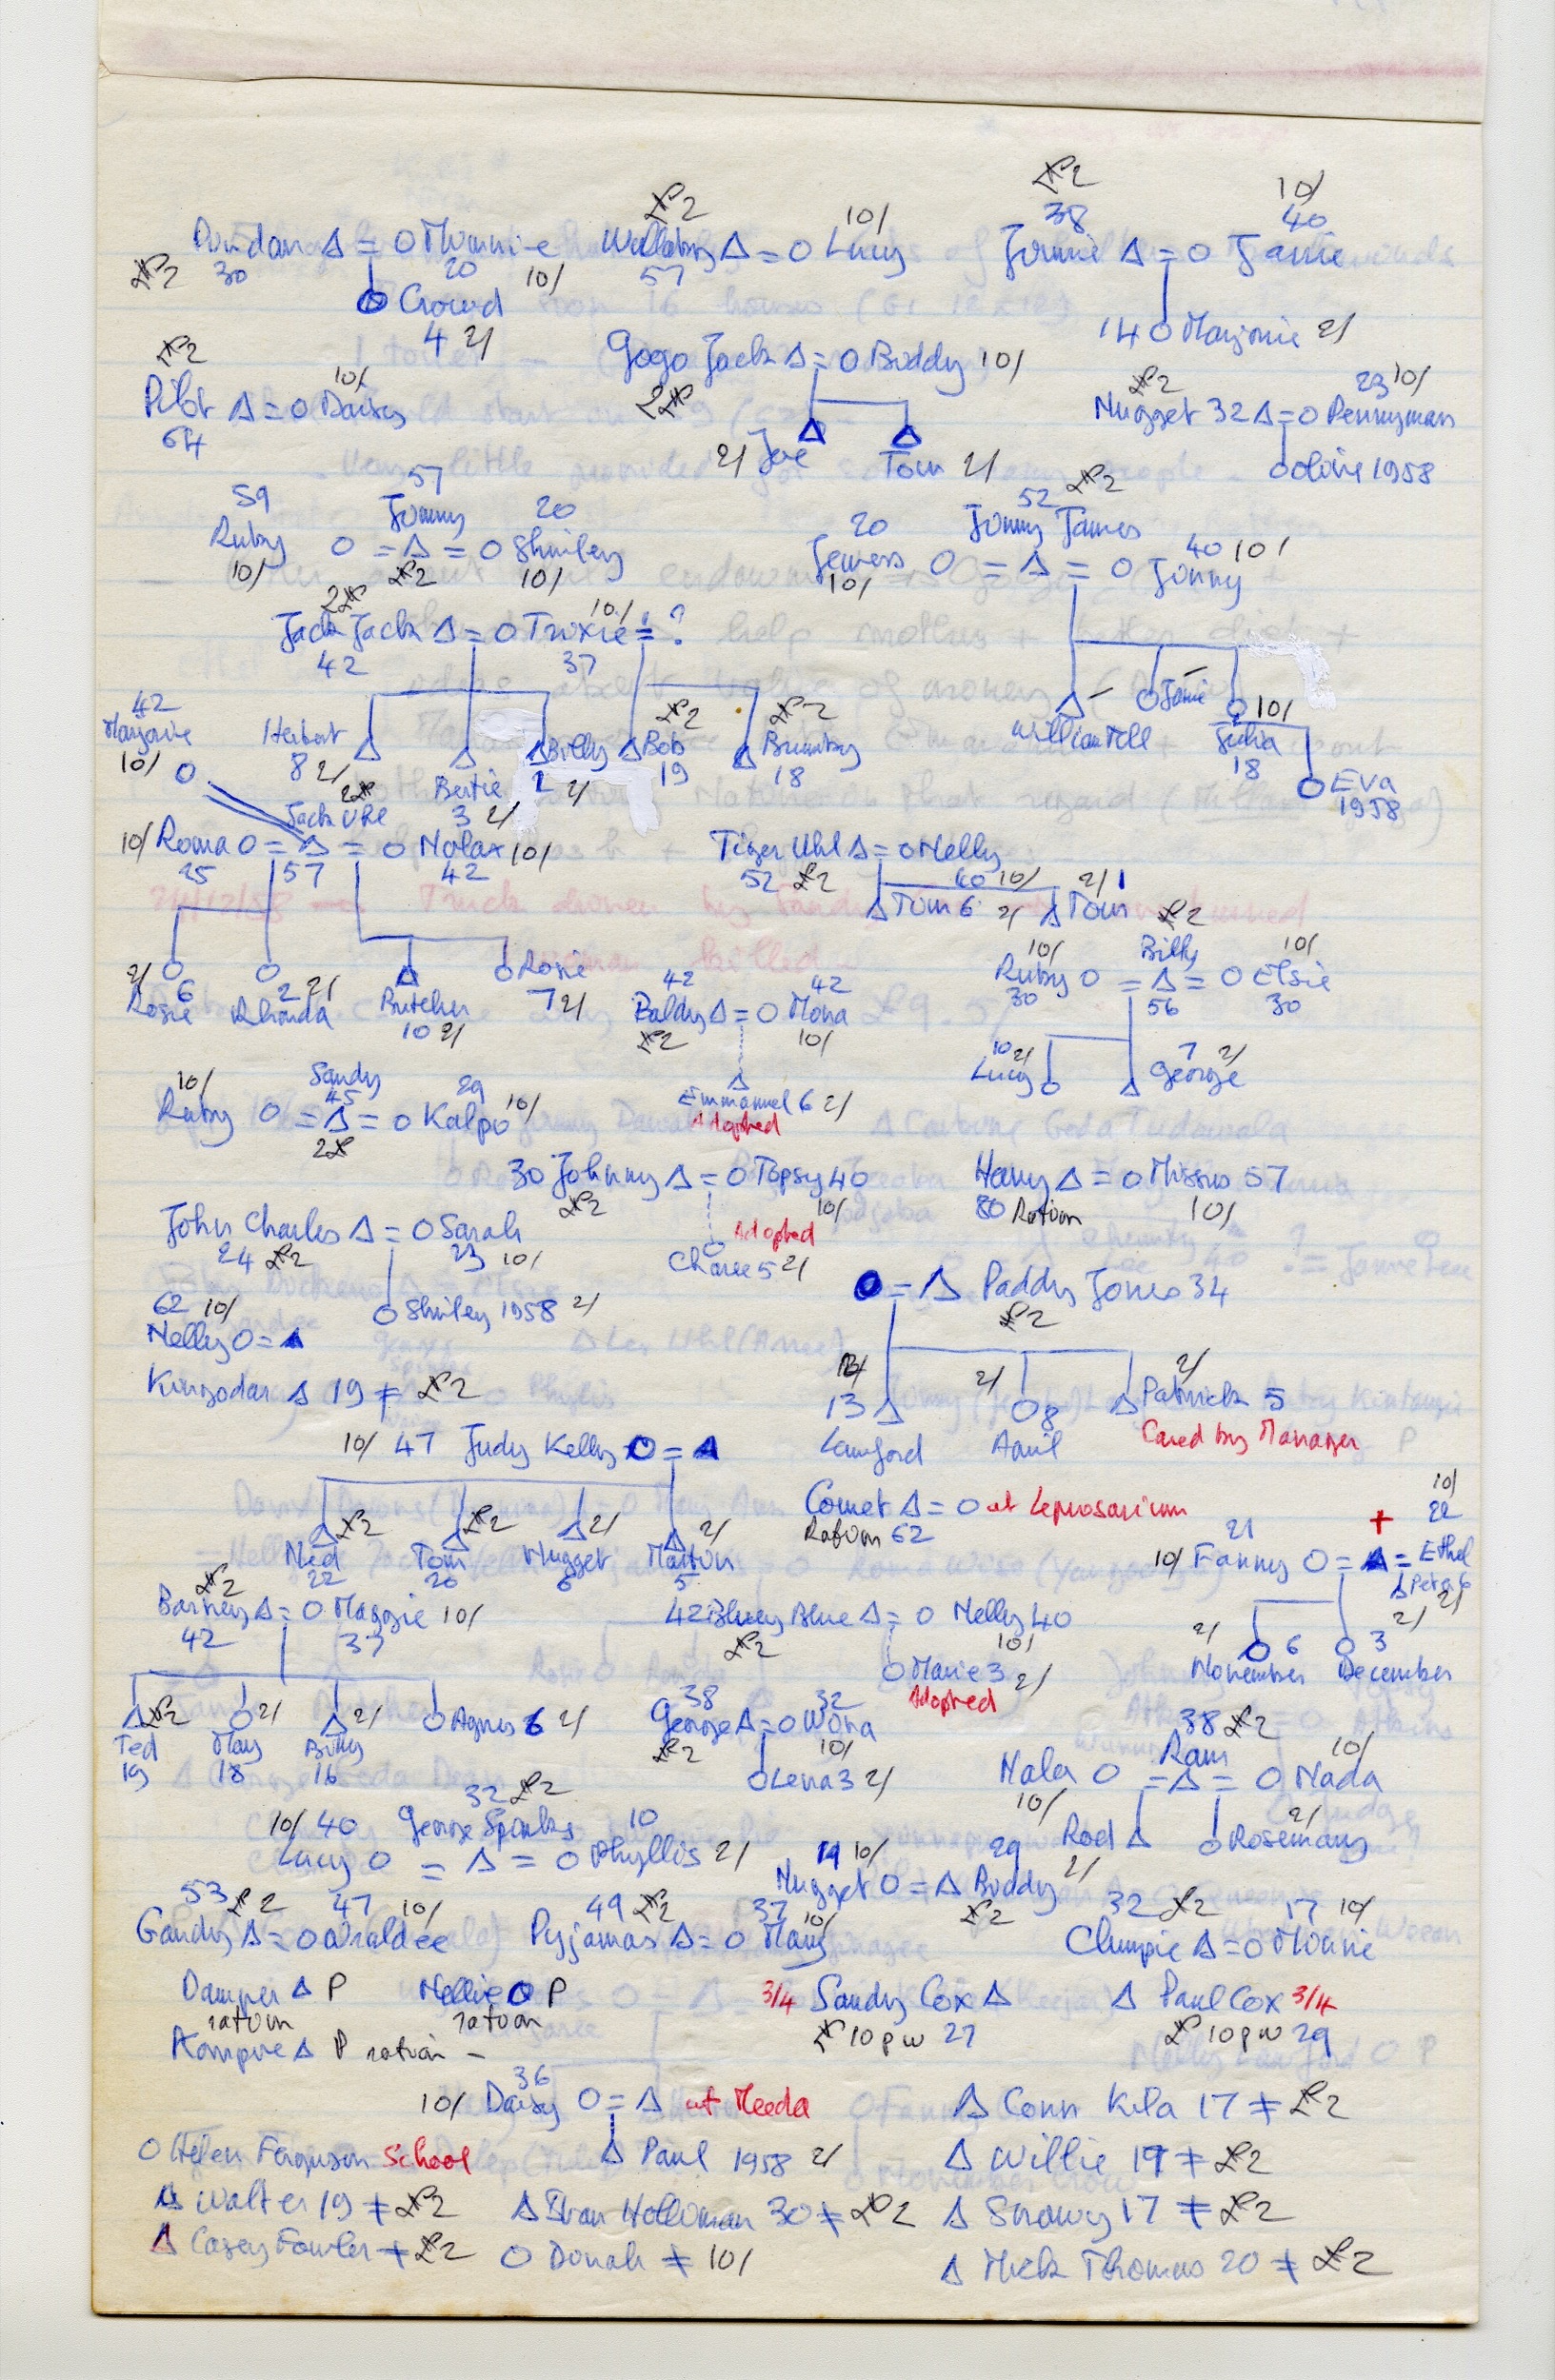 £2 10/
£2 10/ 38 40
Dundan Δ = O Minnie Wallaby Δ = O Lucy Jimmie Δ = O Janie
£2 30 20 10/ 57
Crowd
4 2/ 14 O Marjorie 2/
£2 Gogo Jack Δ = O Biddy 10/
10/ £2 £2 23 10/
Pilot Δ = O Daisy Nugget 32 Δ = O Pennyman
64
2/ Joe Tom 2/ O Olive 1958
59 57 20 52 £2
Ruby O = Jimmy Δ = O Shirley 20 Jimmy James
10/ £2 10/ Jewess O = Δ = O Jinny 40 10/
10/
2£ 10/
Jack Jack Δ = O Trixie = ?
42 37
42 £2 £2 William Tell Janie 10/
Marjorie Herbert Δ Billy Δ Bob Brumby Julia
10/ O 8 2/ Bertie 1 2/ 19 18 18
2£ 3 2/ O Eva
Jack Uhl 1958
10/ Roma O = Δ = O Nolax 10/ Tiger Uhl Δ = O Nelly
25 57 42 52 £2 60 10/ 2/ 1
Δ Tom 6 2/ Δ Tom £2
2/ O O Δ O Rosie 10/ Billy 10/
6 2 2/ 7 2/ 42 42 Ruby O = Δ = O Elsie
Rosie Rhonda Butcher Baldy Δ = O Mona 30 56 30
10 2/ £2 10/
10 2/ 7 2/
Lucy O Δ George
10/ Sandy 29 Δ
Ruby O = 45 Δ = O Kalpo 10/ Emmanuel 6 2/
2£ Adopted
30 Johnny Δ = O Topsy 40 Harry Δ = O Missus 57
£2 10/ 80 Ration 10/
John Charles Δ = O Sarah Adopted
24 £2 23 10/ 5 2/
62 10/ O Shirley 1958 2/ O = Δ Paddy Jones 34
£2
Nelly O = Δ
2/ 2/
Kingodar Δ 19 ≠ £2 13 Δ O 8 Δ Patrick 5
10/ 47 Judy Kelly O = Δ Lanford April Cared by Manager
Comet Δ = O at Leprosarium 10/
£2 £2 2/ 2/ Ration 62 21 + 22
Ned Tom Nugget Martin 10/ Fanny O = Δ = Ethel
22 20 6 5 Δ Peter 6
£2 2/
Barney Δ = O Maggie 10/ 42 Bluey Blue Δ = O Nelly 40 2/
42 37 £2 10/ 2/ O 6 O 3
O Marie 3 2/ November December
Adopted
Δ £2 O 2/ Δ 2/ O Agnes 6 2/ 38 32
Ted May Billy George Δ = O Wona 38 £2
19 18 16 £2 10/ Ram 10/
O Lena 3 2/ Nala O = Δ = O Nada
32 £2 10/ 2/
10/ 40 George Spinks 10 Rod Δ O Rosemary
Lucy O = Δ = O Phyllis 2/ 19 10/ 29
Nugget O = Δ Biddy 2/
53 £2 47 10/ 49 £2 37 10/ £2 32 £2 17 10/
Gandy Δ = O Waldee Pyjamas Δ = O Mary Clumpie Δ = O Minnie
Damper Δ P Nellie O P 3/4 Sandy Cox Δ Δ Paul Cox 3/4
ration ration £10 pw 27 £10 pw 29
Kompire Δ P ration –
36
10/ Daisy O = Δ at Meeda Δ Conn Kila 17 ≠ £2
O Helen Ferguson School Δ Paul 1958 2/ Δ Willie 19 ≠ £2
Δ Walter 19 ≠ £2 Δ Ivan Holloman 30 ≠ £2 Δ Snowy 17 ≠ £2
Δ Casey Fowler ≠ £2 O Donah ≠ 10/ Δ Mick Thomas 20 ≠ £2